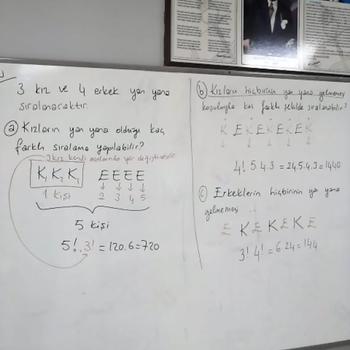 3 kız ve 4 erkek yan yana
sıralanacaktır.
a) Kızların yan yana olduğu kaç
farklı sıralama yapılabilir?
3 kız kendi aralarında yer değiştirebilir
K₁ K₁ K₁ E E E E
1 kişi 2 3 4 5
5 kişi
5! . 3! = 120.6 = 720
b) Kızların hiçbirinin yan yana gelmemesi
koşuluyla kaç farklı şekilde sıralanabilir?
K E K E K E K E K
4! . 5 . 4 . 3 = 24.5.4.3 = 1440
c) Erkeklerin hiçbirinin yan yana
gelmemesi
E K E K E K E
3! 4! = 6.24 = 144